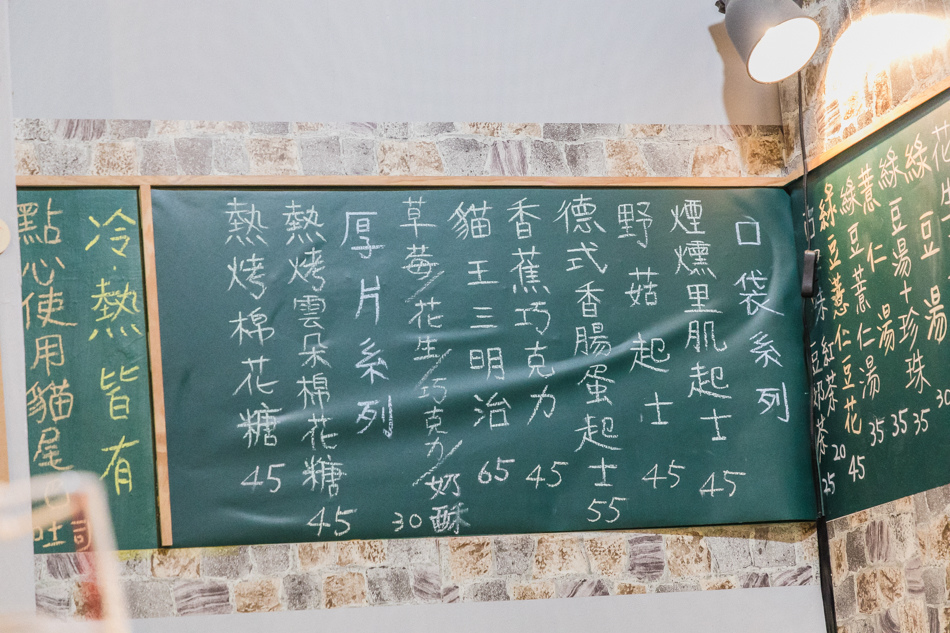 花
綠豆湯 30
綠豆湯+珍珠 35
薏仁湯 35
綠豆薏仁湯 35
綠豆薏仁豆花 45
紅茶 20
豆奶茶 25
口袋系列
煙燻里肌起士 45
野菇起士 45
德式香腸蛋起士 55
香蕉巧克力 45
貓王三明治 65
草莓/花生/巧克力/奶酥 30
厚片系列
熱烤雲朵棉花糖 45
熱烤棉花糖 45
冷.熱皆有
點心使用貓尾吐司